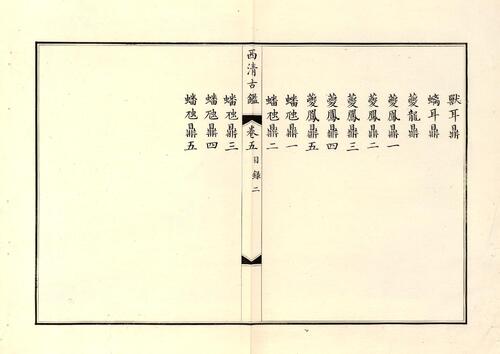 獸耳鼎
螭耳鼎
夔龍鼎
夔鳳鼎一
夔鳳鼎二
夔鳳鼎三
夔鳳鼎四
夔鳳鼎五
蟠虺鼎一
蟠虺鼎二
西清古鑑 卷五目錄 二
蟠虺鼎三
蟠虺鼎四
蟠虺鼎五